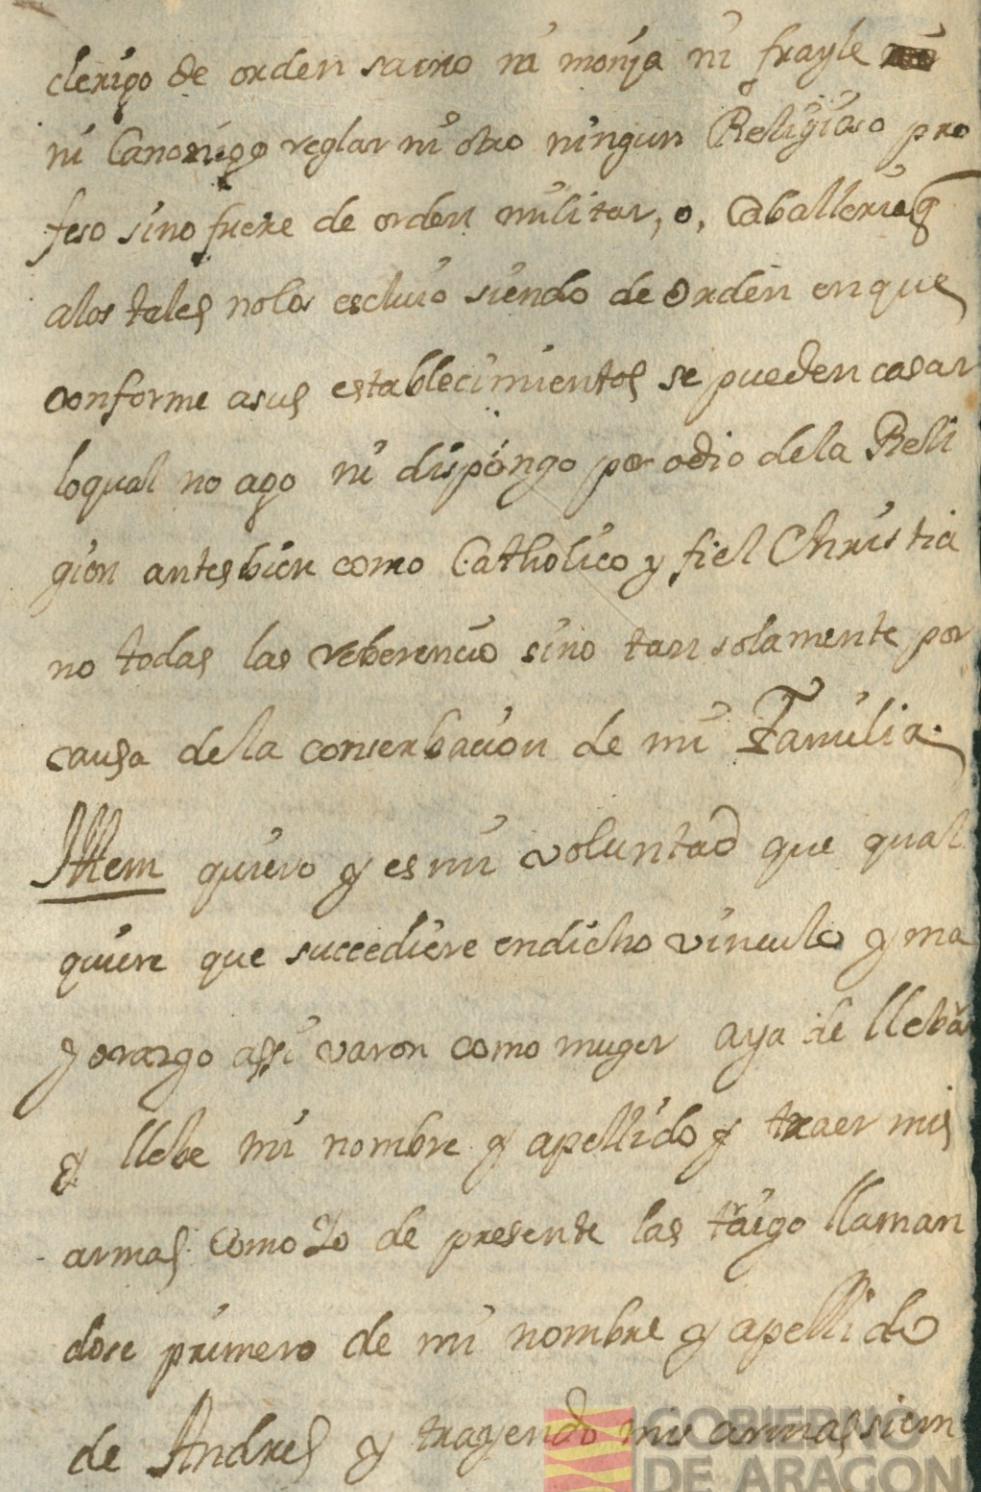 clerigo de orden sacro ni monja ni frayle
ni Canonigo reglar ni otro ningun Religioso pro
feso sino fuere de orden militar, o, Caballeria q
alos tales nolos escluio siendo de orden en que
conforme asus establecimientos se pueden casar
loqual no ago ni dispongo por odio dela Reli
gion antesbien como Catholico y fiel Christia
no todas las reberencio sino tan solamente por
causa dela conserbacion de mi Familia.
Ittem quiero y es mi voluntad que qual
quiere que succediere endicho vinculo y ma
yorazgo assi varon como muger aya de llebar
y llebe mi nombre y apellido y traer mis
armas como Yo de presente las traigo llaman
dose primero de mi nombre y apellido
de Andres y trayendo mis armas siem
GOBIERNO
DE ARAGON